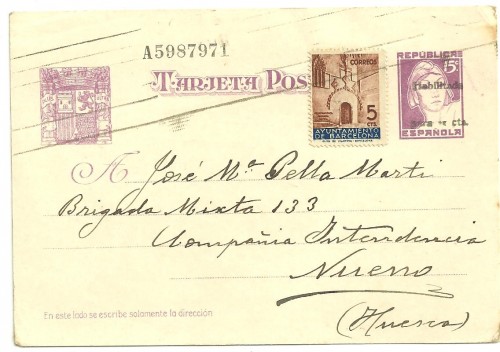 A5987971
TARJETA POS
CORREOS
5
CTS.
AYUNTAMIENTO
DE BARCELONA
REPÚBLICA
15c
Habilitada
para cts.
ESPAÑOLA
A José Mª Pella Marti
Brigada Mixta 133
Compañia Intendencia
Nueno
(Huesca)
En este lado se escribe solamente la dirección